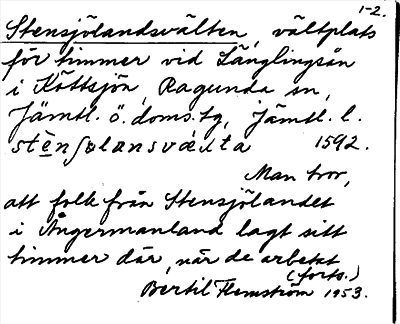 1-2.
Stensjölandsvälten, vältplats
för timmer vid Länglingsån
i Köttsjön, Ragunda sn,
Jämtl. ö. doms.tg, Jämtl. l.
1592.
Man tror,
att folk från Stensjölandet
i Ångermanland lagt sitt
timmer där, när de arbetat
(forts.)
Bertil Flemström 1953.